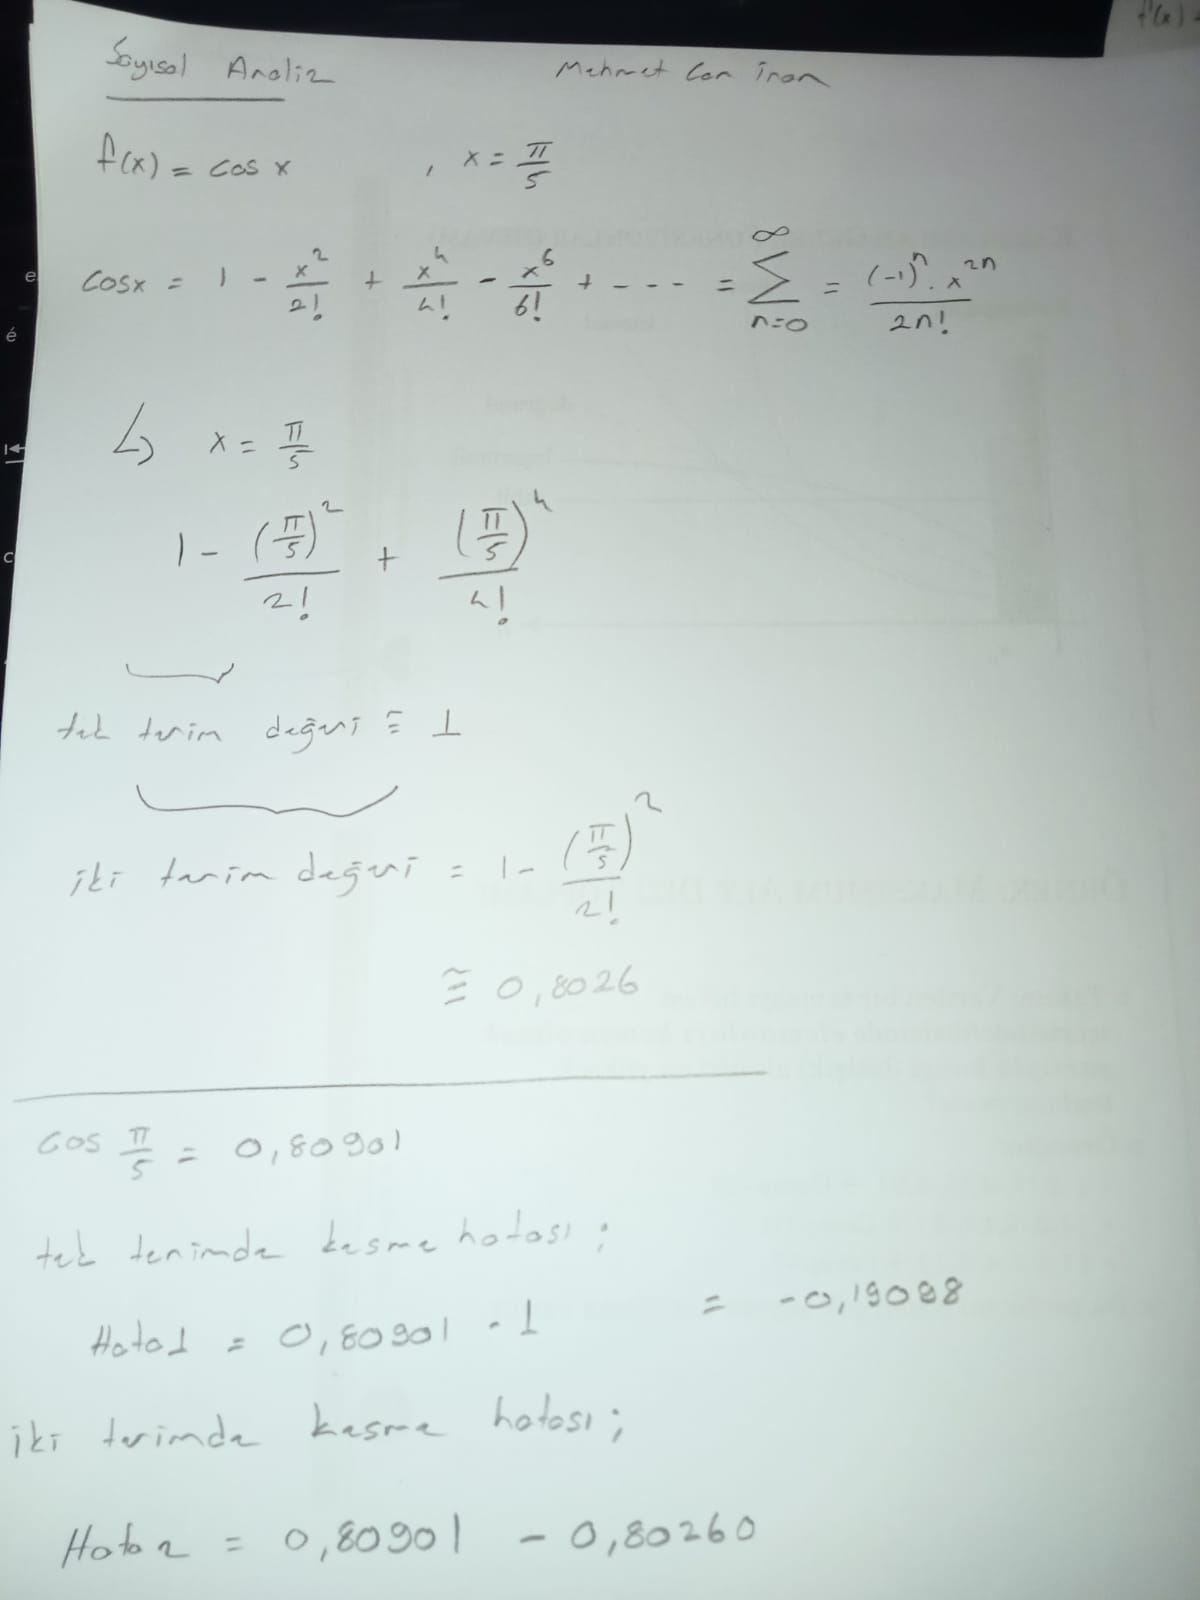 Sayısal Analiz Mehmet Can İnan
f(x) = cos x , x = π/5
cosx = 1 - x²/2! + x⁴/4! - x⁶/6! + - - - = ∞ Σ n=0 = (-1)ⁿ . x²ⁿ / 2n!
↳ x = π/5
1 - (π/5)²/2! + (π/5)⁴/4!
tek terim değeri ≅ 1
iki terim değeri = 1 - (π/5)²/2!
≅ 0,8026
cos π/5 = 0,80901
tek terimde kesme hatası ;
Hata1 = 0,80901 - 1 = -0,19098
iki terimde kesme hatası ;
Hata2 = 0,80901 - 0,80260